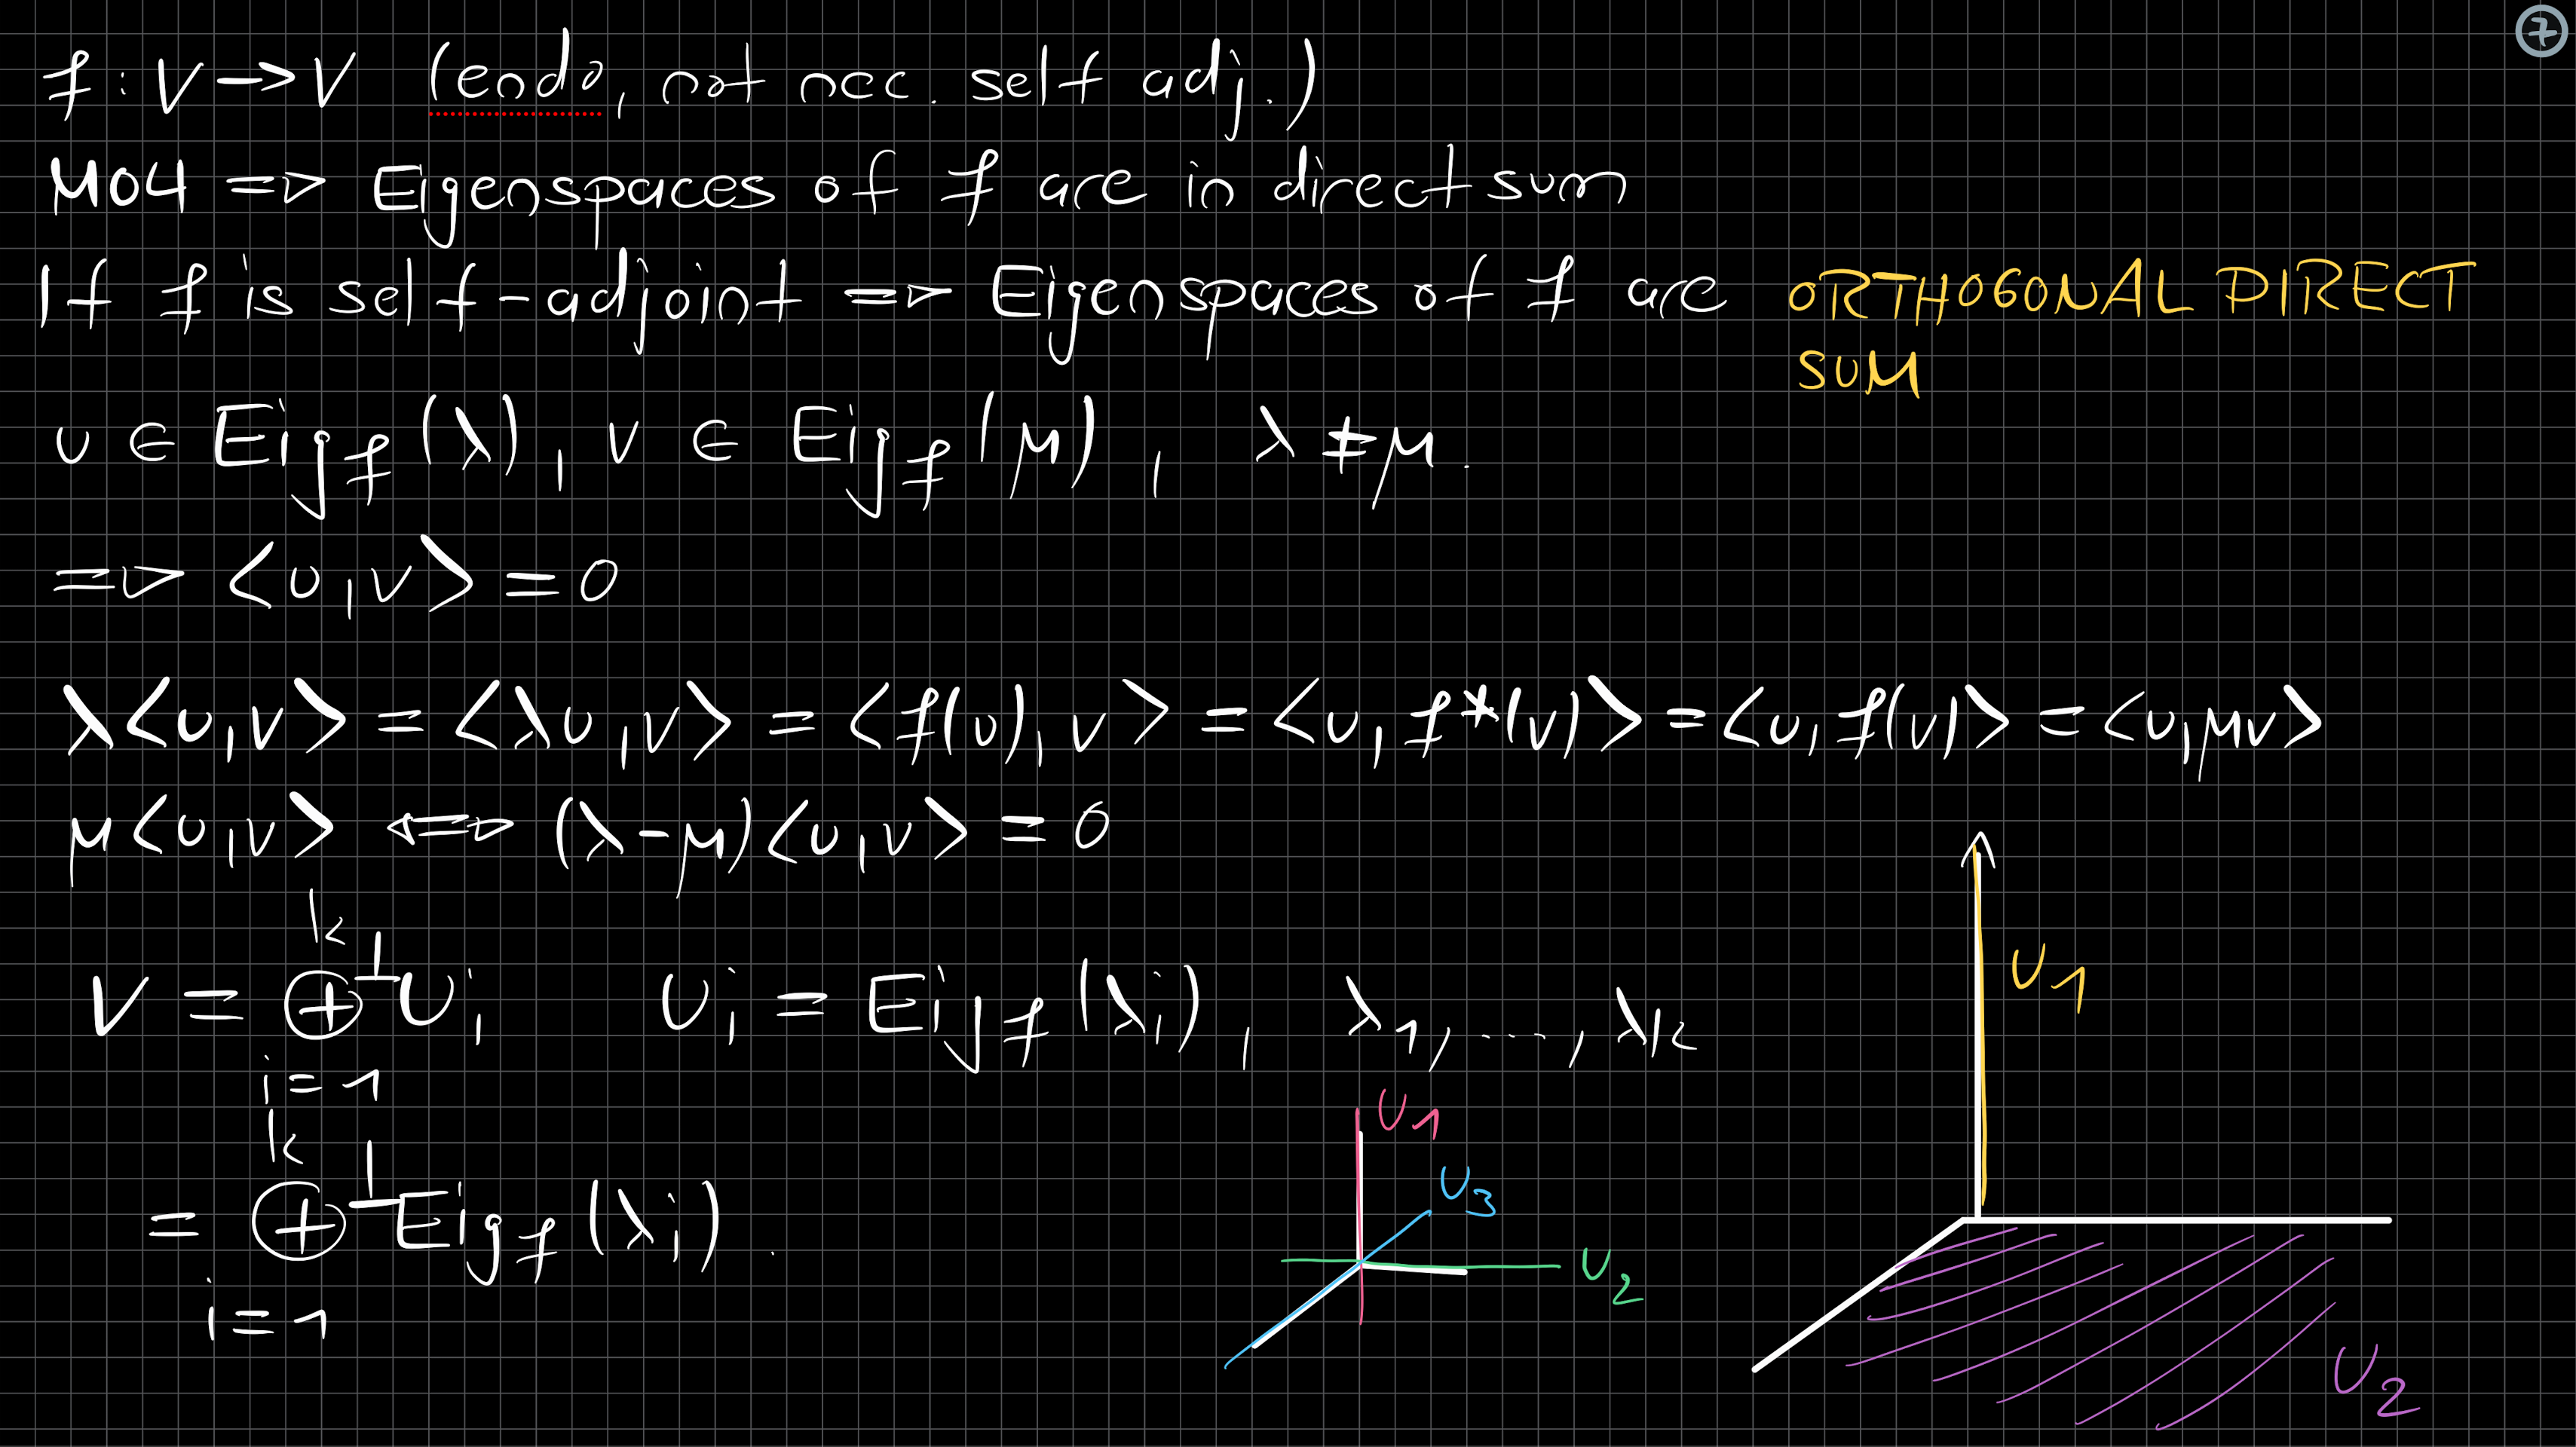 7
f : V → V (endo, not nec. self adj.)
M04 => Eigenspaces of f are in direct sum
If f is self-adjoint => Eigenspaces of f are ORTHOGONAL DIRECT
SUM
u ∈ Eig_f(λ), v ∈ Eig_f(μ), λ ≠ μ.
=> <u,v> = 0
λ<u,v> = <λu,v> = <f(u),v> = <u,f*(v)> = <u,f(v)> = <u,μv>
μ<u,v> <=> (λ-μ)<u,v> = 0
V = ⊕^⊥_{i=1}^{k} U_i U_i = Eig_f(λ_i), λ_1, ..., λ_k
= ⊕^⊥_{i=1}^{k} Eig_f(λ_i).
U_1
U_3
U_2
U_1
U_2